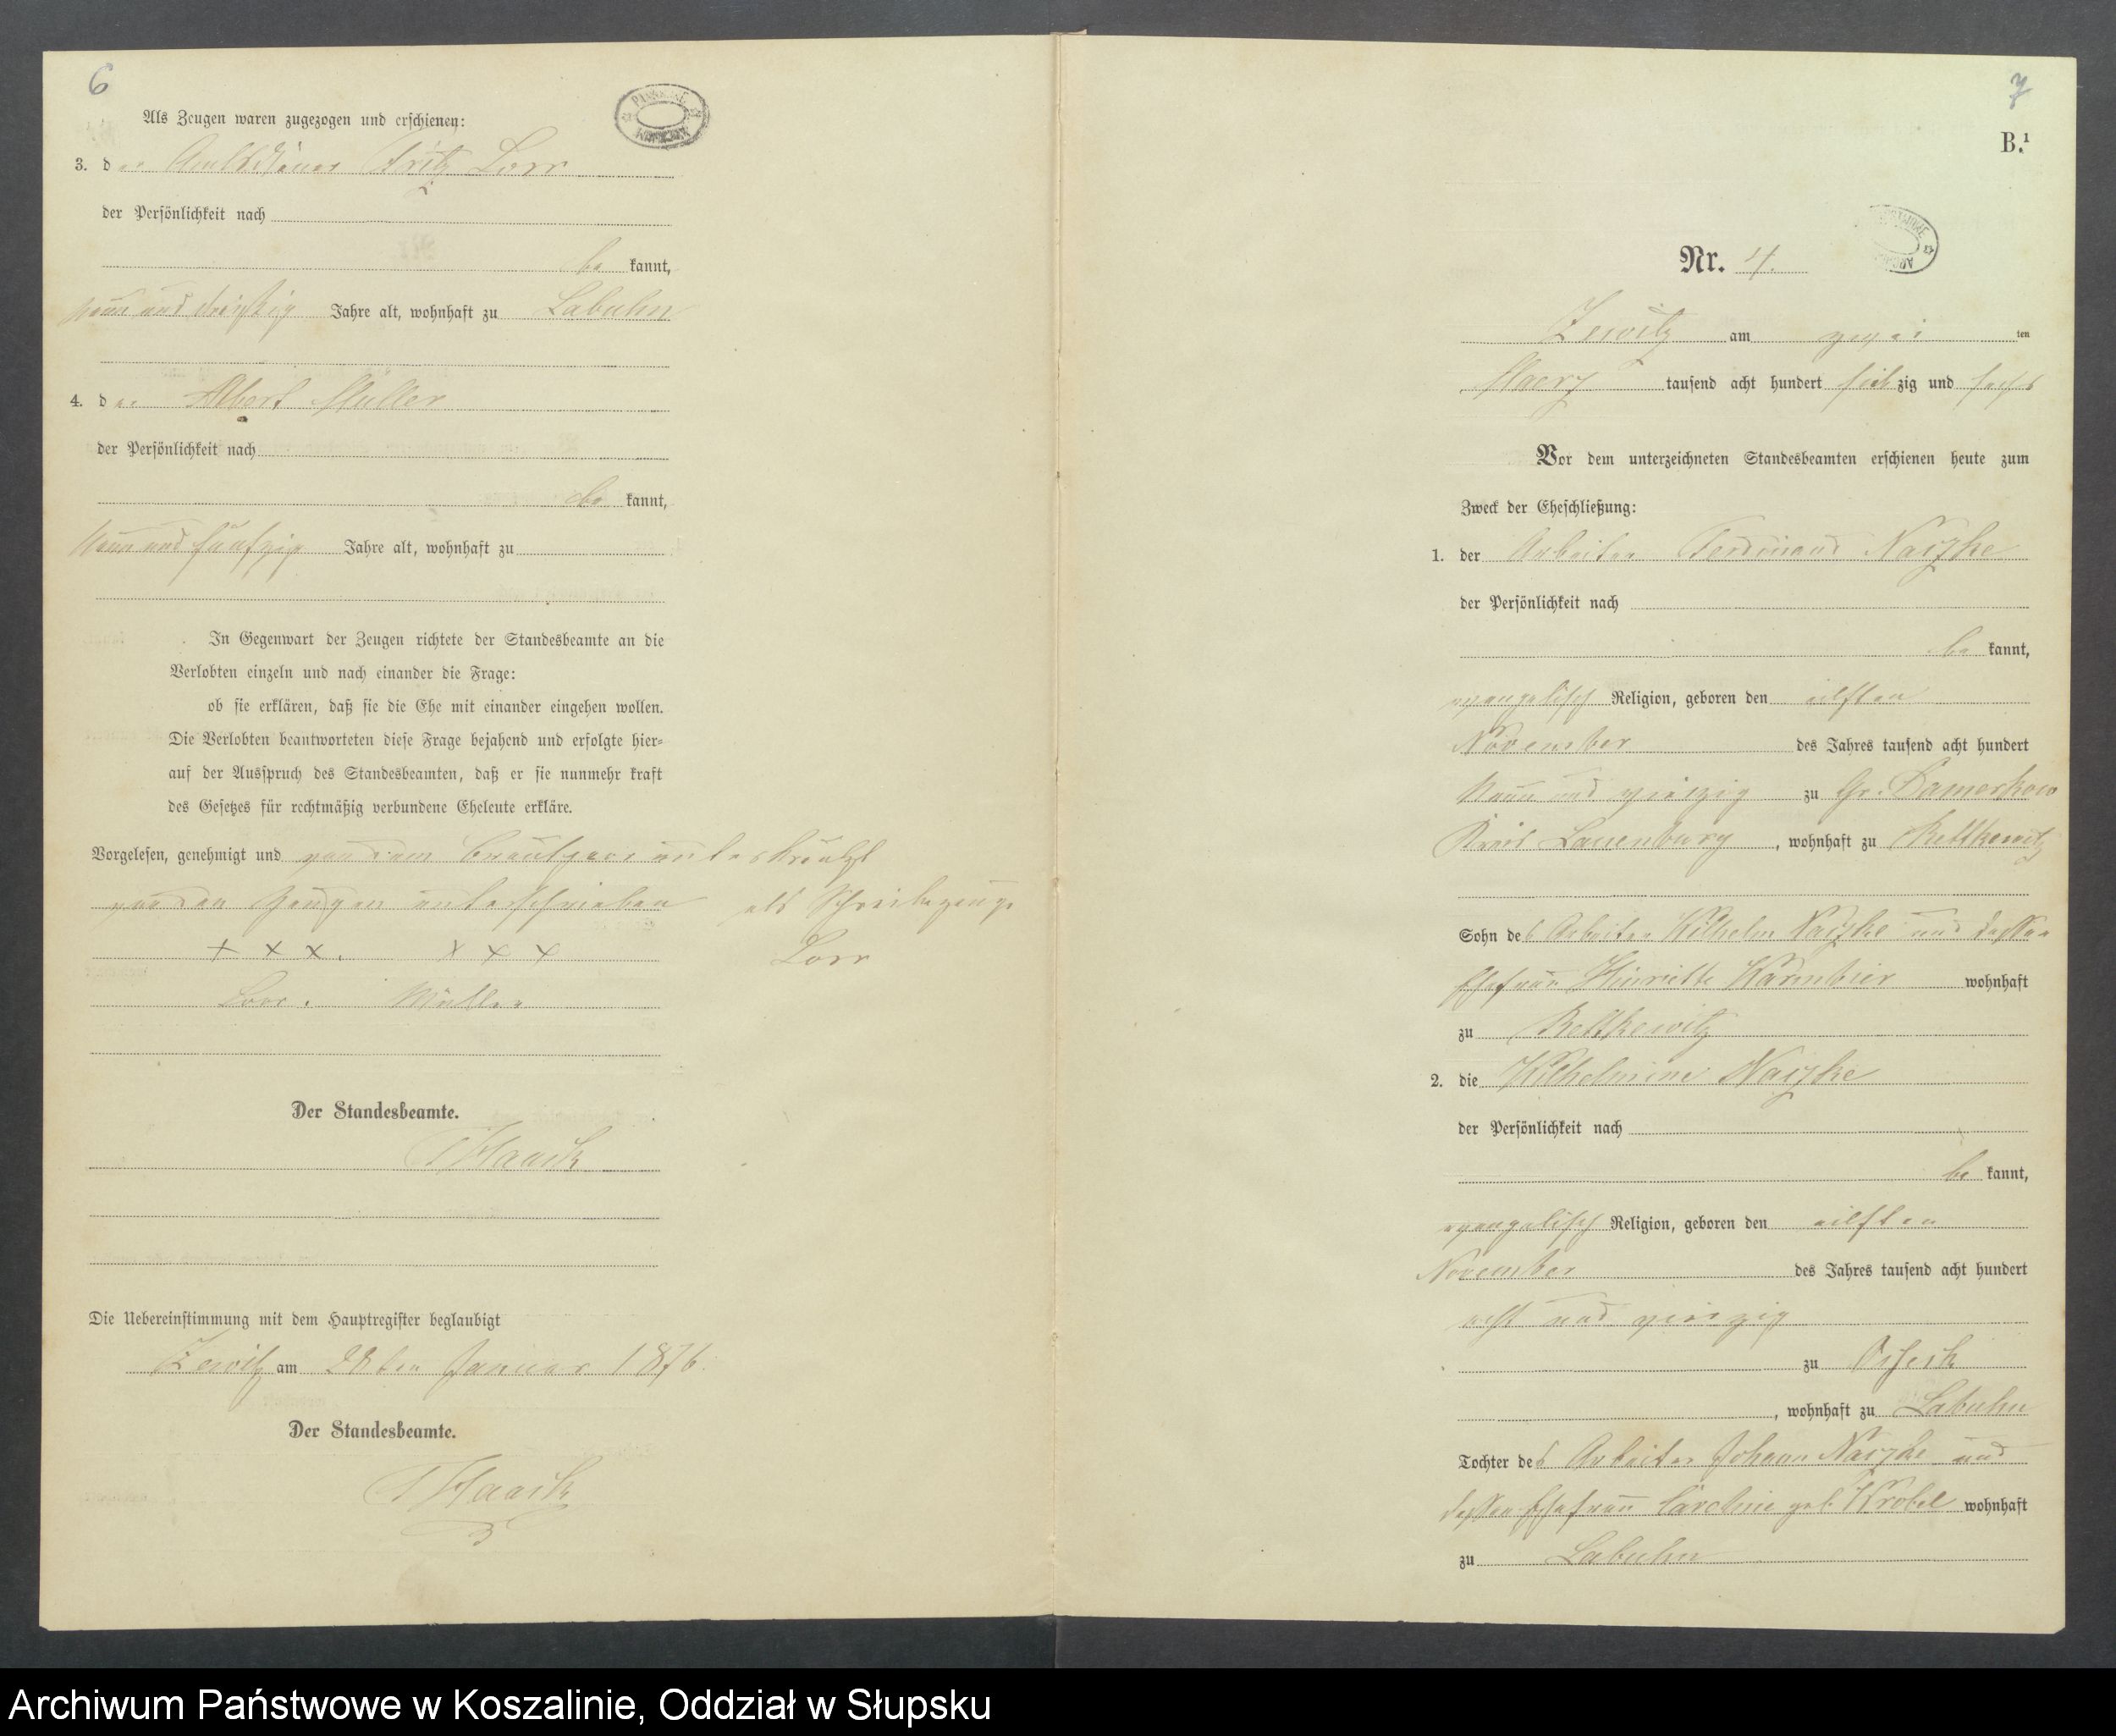 6
Als Zeugen waren zugezogen und erschienen:
3. der Amtsdiener Fritz Lorr
der Persönlichkeit nach
be kannt,
neun und dreißig Jahre alt, wohnhaft zu Labuhn
4. der Albert Müller
der Persönlichkeit nach
be kannt,
neun und fünfzig Jahre alt, wohnhaft zu
In Gegenwart der Zeugen richtete der Standesbeamte an die
Verlobten einzeln und nach einander die Frage:
ob sie erklären, daß sie die Ehe mit einander eingehen wollen.
Die Verlobten beantworteten diese Frage bejahend und erfolgte hier-
auf der Ausspruch des Standesbeamten, daß er sie nunmehr kraft
des Gesetzes für rechtmäßig verbundene Eheleute erkläre.
Vorgelesen, genehmigt und von dem Brautpaar unterkreutzt
von den Zeugen unterschrieben als Schreibezeuge
+ x x. x x x Lorr
Lorr. Müller
Der Standesbeamte.
Haack
Die Uebereinstimmung mit dem Hauptregister beglaubigt
Zewitz am 28ten Januar 1876.
Der Standesbeamte.
Haack
7
B.¹
ARCHIWUM
Nr. 4.
Zewitz am zwei ten
Maerz tausend acht hundert sieb zig und sechs
Vor dem unterzeichneten Standesbeamten erschienen heute zum
Zweck der Eheschließung:
1. der Arbeiter Ferdinand Natzke
der Persönlichkeit nach
be kannt,
evangelisch Religion, geboren den eilften
November des Jahres tausend acht hundert
neun und vierzig zu Gr. Damerkow
Kreis Lauenburg, wohnhaft zu Rettkewitz
Sohn des Arbeiter Wilhelm Natzke und dessen
Ehefrau Henriette Karmbier wohnhaft
zu Rettkewitz
2. die Wilhelmine Natzke
der Persönlichkeit nach
be kannt,
evangelisch Religion, geboren den eilften
November des Jahres tausend acht hundert
acht und vierzig
zu Osseck
, wohnhaft zu Labuhn
Tochter des Arbeiter Johann Natzke und
dessen Ehefrau Caroline geb. Wrobel wohnhaft
zu Labuhn
Archiwum Państwowe w Koszalinie, Oddział w Słupsku